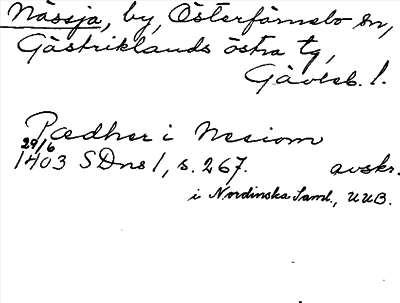 Nässja, by, Österfärnebo sn,
Gästriklands östra tg,
Gävleb. l.
Pædher i Nesiom
29/6
1403 SDns 1, s. 267. avskr.
i Nordinska Saml., UUB.